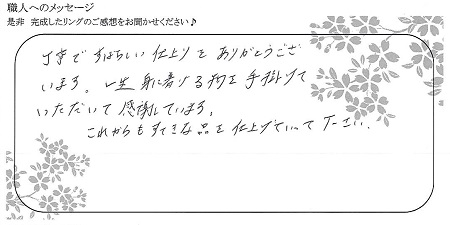 職人へのメッセージ
是非 完成したリングのご感想をお聞かせください♪
丁寧ですばらしい仕上りをありがとうござ
います。一生身に着ける物を手掛けて
いただいて感謝しています。
これからもすてきな品を仕上げていって下さい.